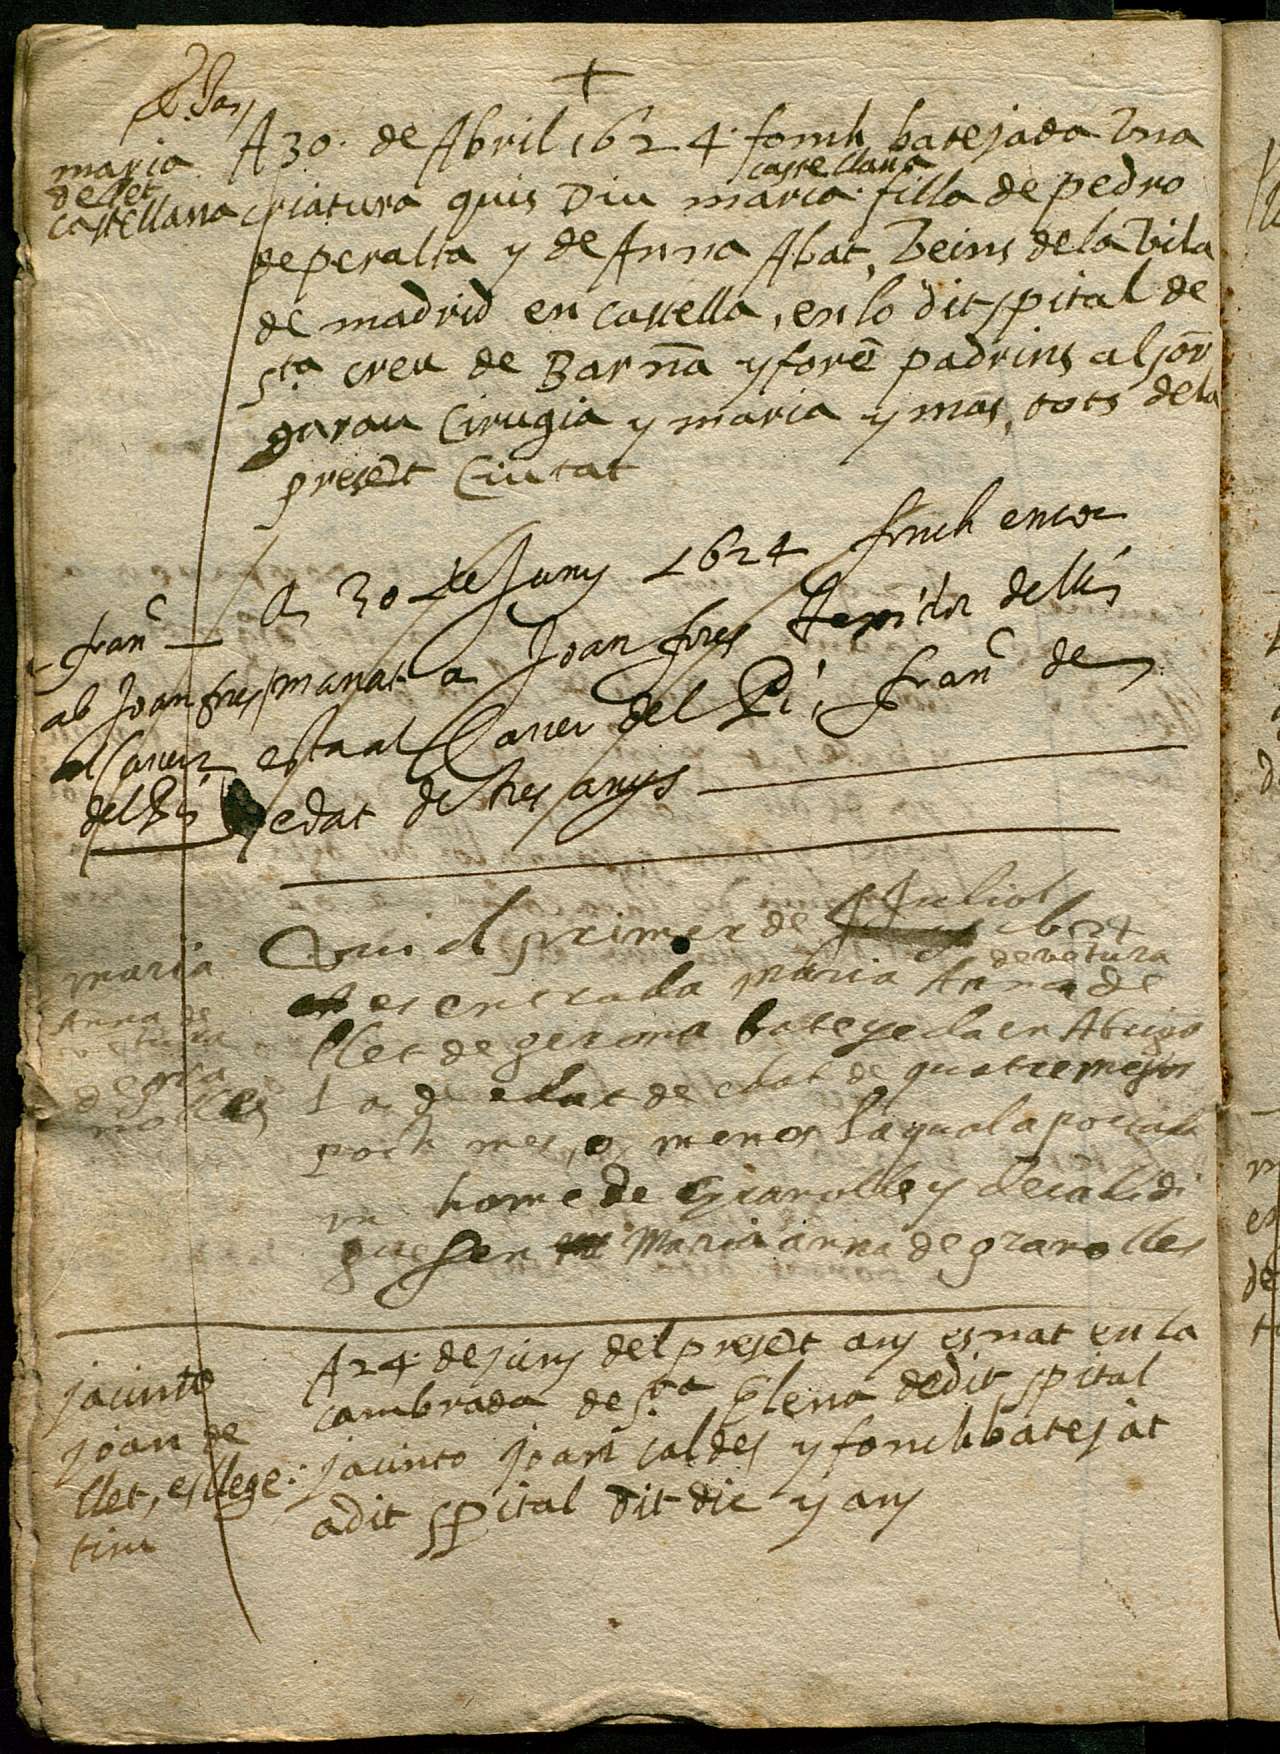 +
maria
de llet
castellana
A 30. de Abril 1624. fonch batejada Vna
castellana
criatura quis Diu maria. filla de pedro
de peralta y de Anna Abat, Veins de la Vila
de madrid en castella, en lo dit spital de
Sta. creu de Barña y forē padrins al Joā
garau Cirugia y maria y mas, tots de la
presēt Ciutat
franc
ab Joan fres
al carrer
del Pi
A 30 de Juny 1624 fonch enco
manat a Joan fres texidor de lli
esta al Carrer del Pi, franc de
edat de tres anys
maria
Anna de
ventura
de gra
nolles
Vui al primer de Juliol 1624
es entrada maria Anna de ventura de
llet de gerona bateyeda en
de edat de edat de quatre mesos
poch mes, o menos la qual aportada
un home de Granolles y
que sen maria anna de granolles
jacinto
joan de
llet, es llege
tim
A 24. de juny del presēt any es nat en la
cambrada de Sta. Elena de dit spital
jacinto joan caldes y fonch batejat
a dit spital dit die y any